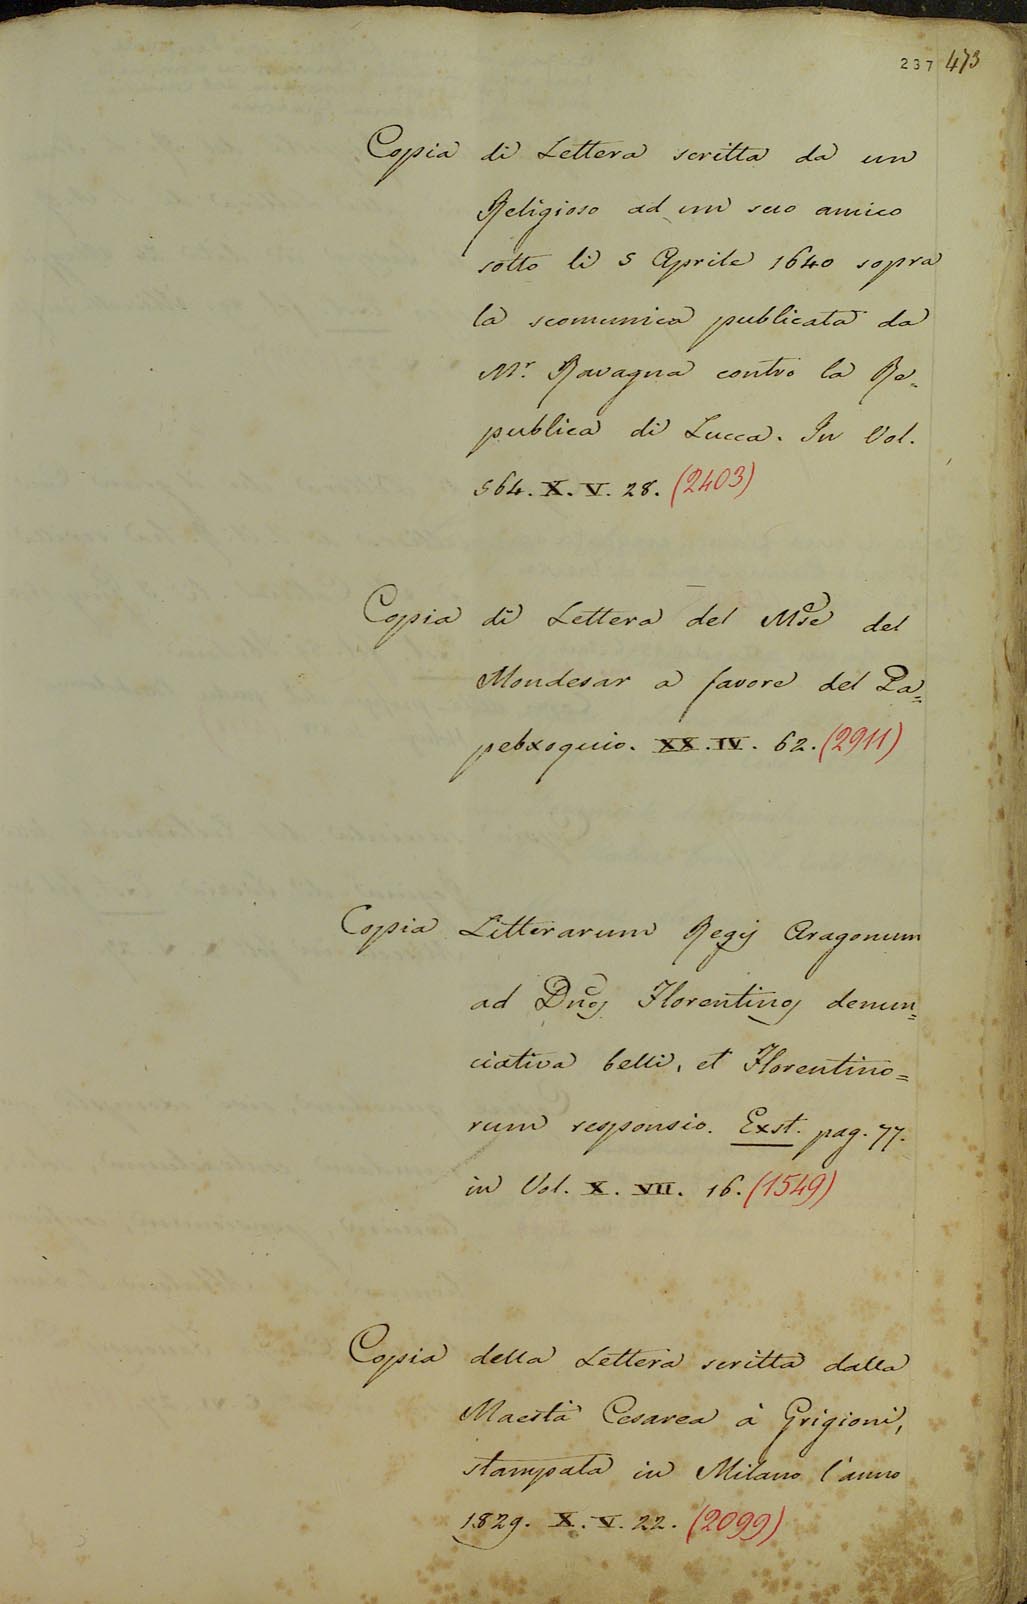 237 473
Copia di Lettera scritta da un
Religioso ad un suo amico
sotto li 5 Aprile 1640 sopra
la scomunica publicata da
Mr. Ravagna contro la Re=
publica di Lucca. In Vol.
564. X. V. 28. (2403)
Copia di Lettera del Mse del
Mondesar a favore del Pa=
pebxoquio. XX. IV. 62. (2911)
Copia Litterarum Regij Aragonum
ad Dnos Florentinos denun=
ciativa belli, et Florentino=
rum responsio. Exst. pag. 77.
in Vol. X. VII. 16. (1549)
Copia della Lettera scritta dalla
Maestà Cesarea à Grigioni,
stampata in Milano l'anno
1829. X. V. 22. (2099)